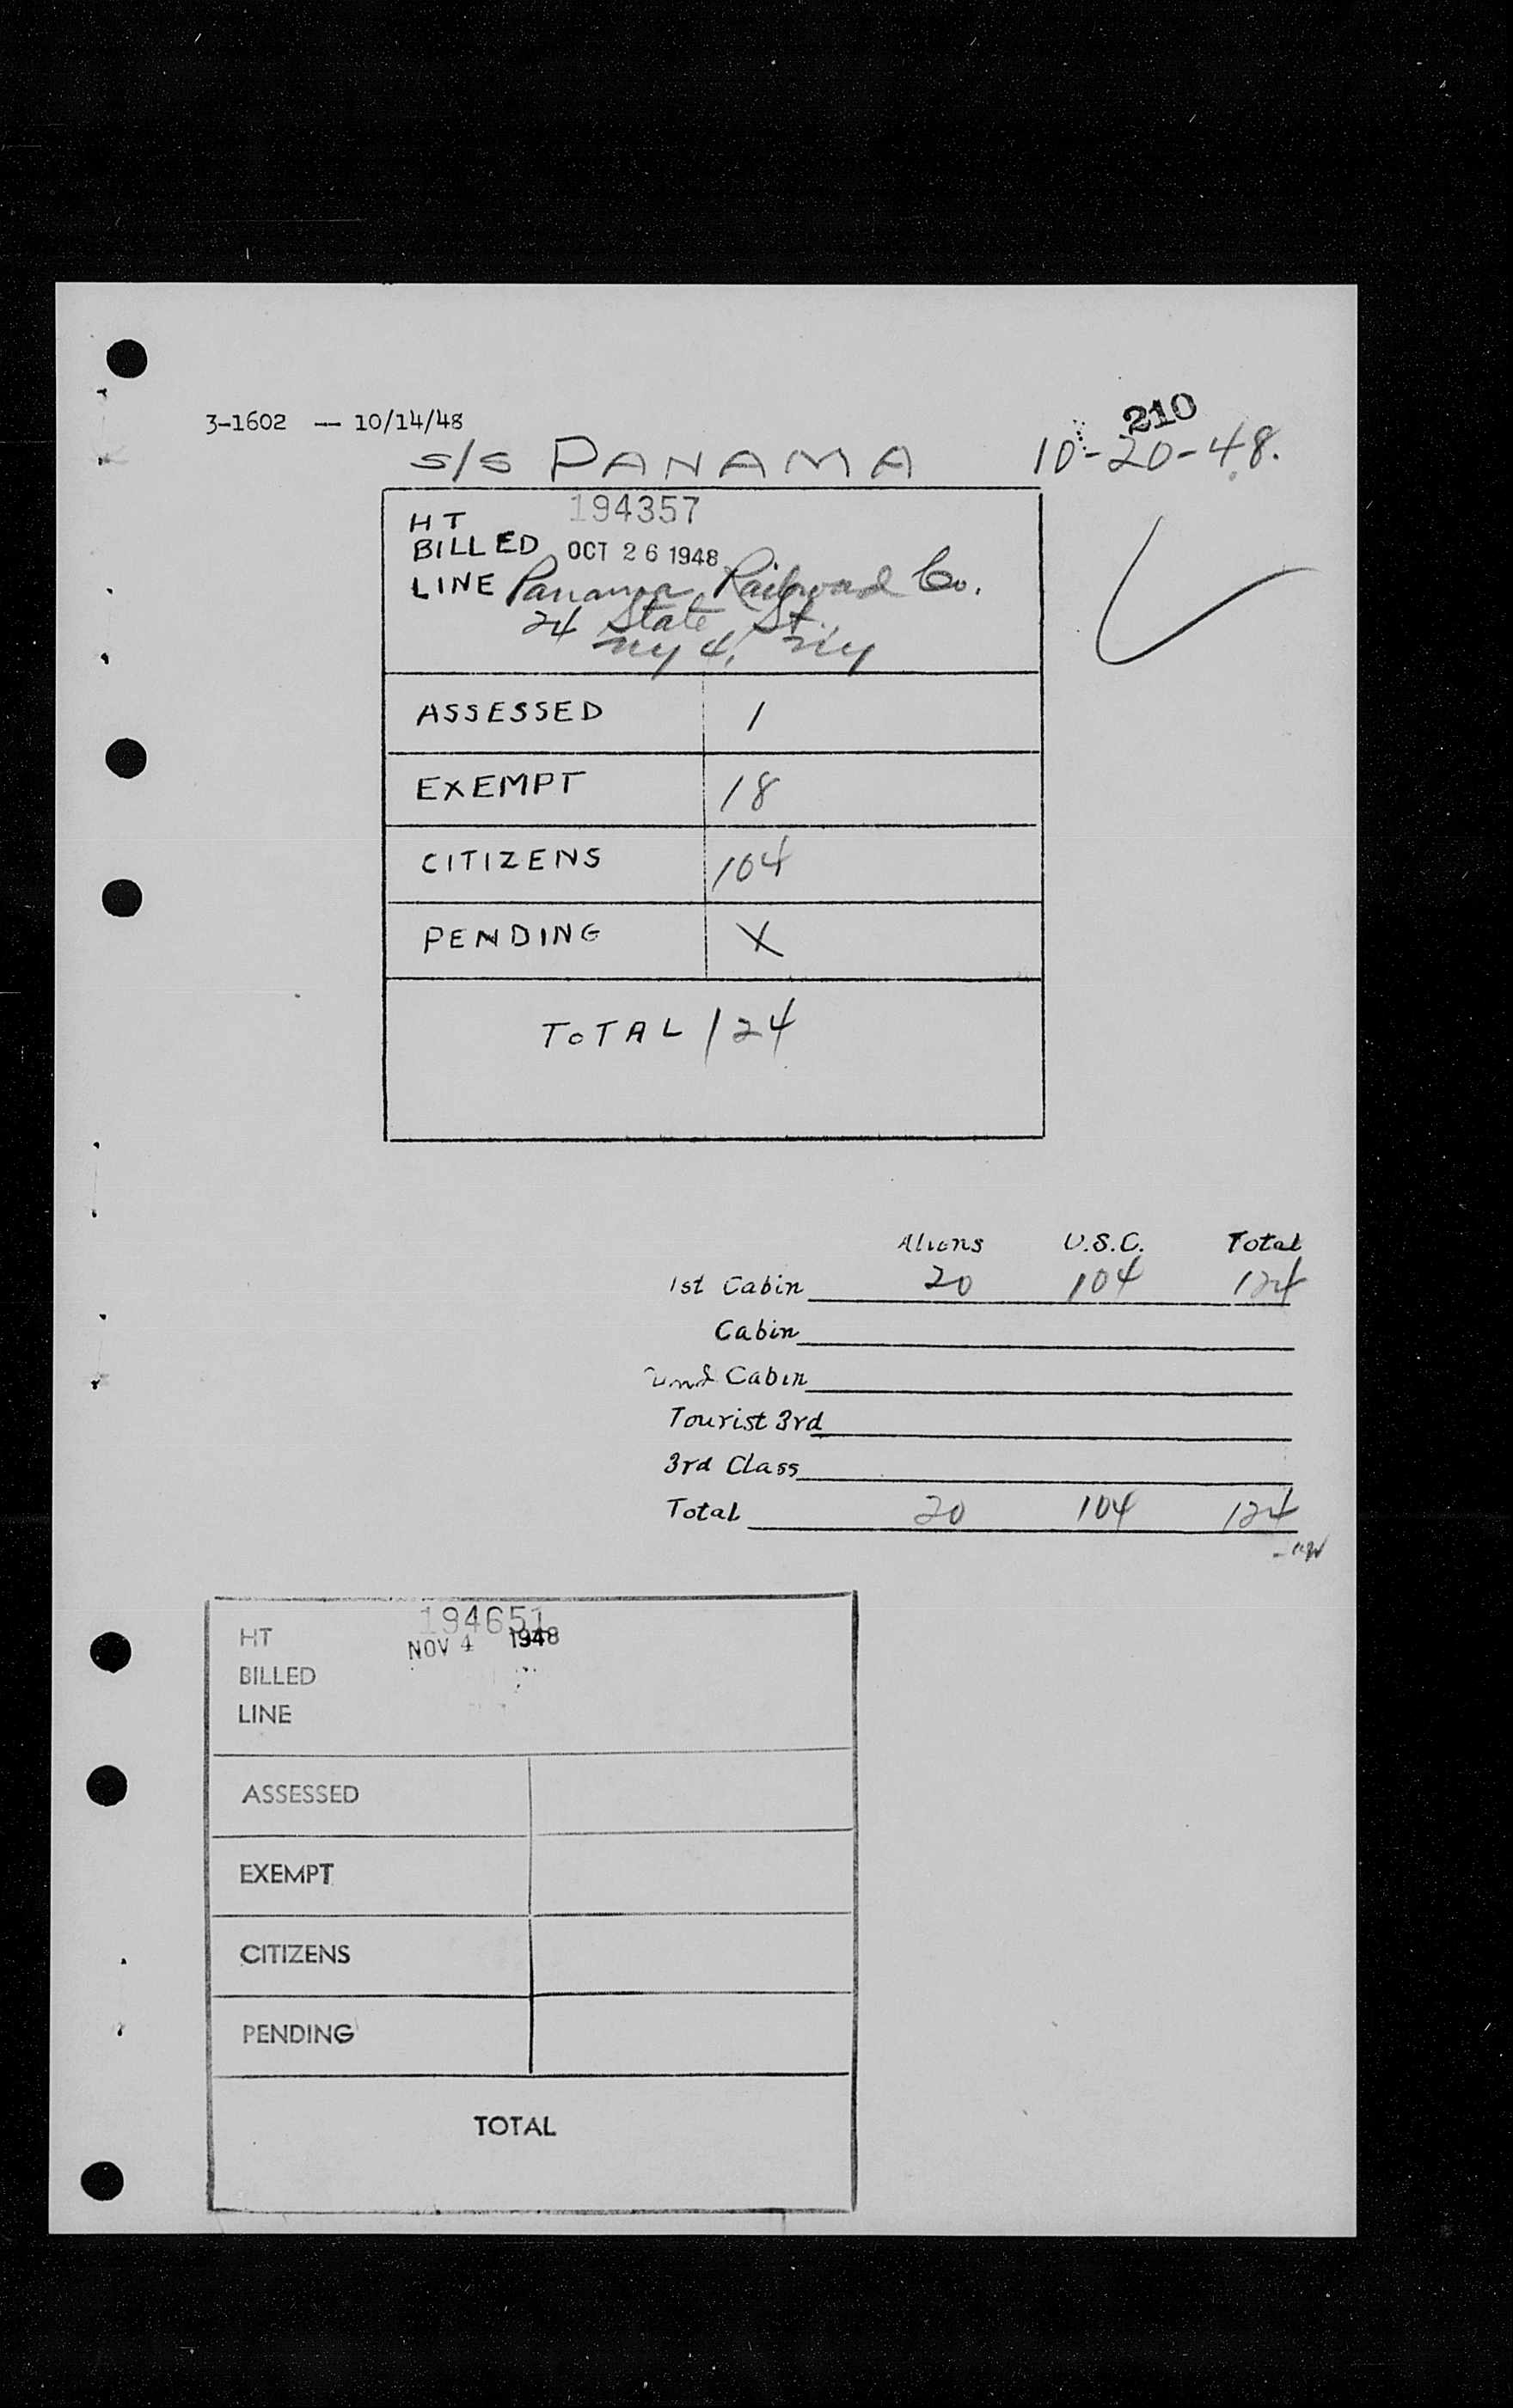 210
3-1602 -- 10/14/48
S/S PANAMA 10-20-48.
HT 194357
BILLED OCT 26 1948
LINE Panama Railroad Co.
24 State St.
NY 4, NY
ASSESSED 1
EXEMPT 18
CITIZENS 104
PENDING X
TOTAL 124
Aliens U.S.C. Total
1st Cabin 20 104 124
Cabin
2nd Cabin
Tourist 3rd
3rd Class
Total 20 104 124
194651
HT NOV 4 1948
BILLED
LINE
ASSESSED
EXEMPT
CITIZENS
PENDING
TOTAL